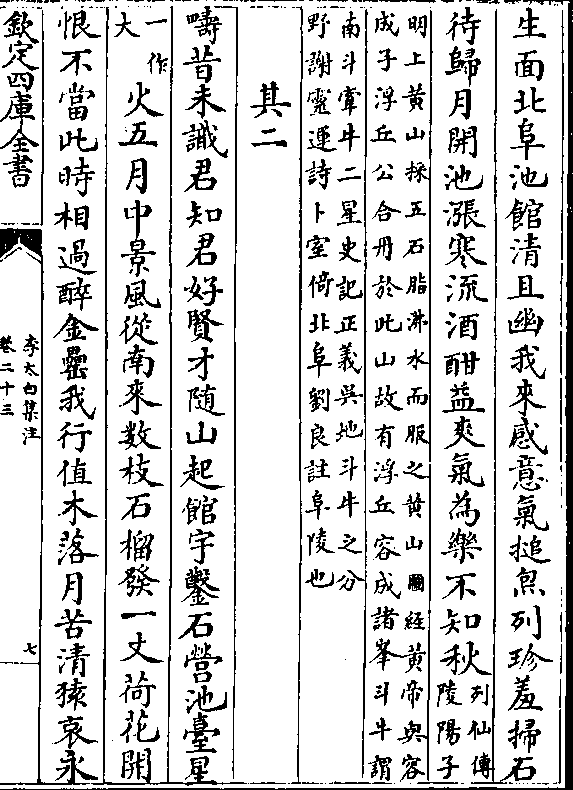 生面北阜池館清且幽我來感意氣搥炰列珍羞掃石
待歸月開池漲寒流酒酣益爽氣為樂不知秋
列仙傳
陵陽子
明上黄山採五石脂沸水而服之黄山圖經黄帝與容
成子浮丘公合丹於此山故有浮丘容成諸峯斗牛謂
南斗牽牛二星史記正義吳地斗牛之分
野謝靈運詩卜室倚北阜劉良註阜陵也
其二
疇昔未識君知君好賢才隨山起館宇鑿石營池臺星
一作
大
火五月中景風從南來數枝石榴發一丈荷花開
恨不當此時相過醉金罍我行值木落月苦清猿哀永
欽定四庫全書
李太白集注
卷二十三
七